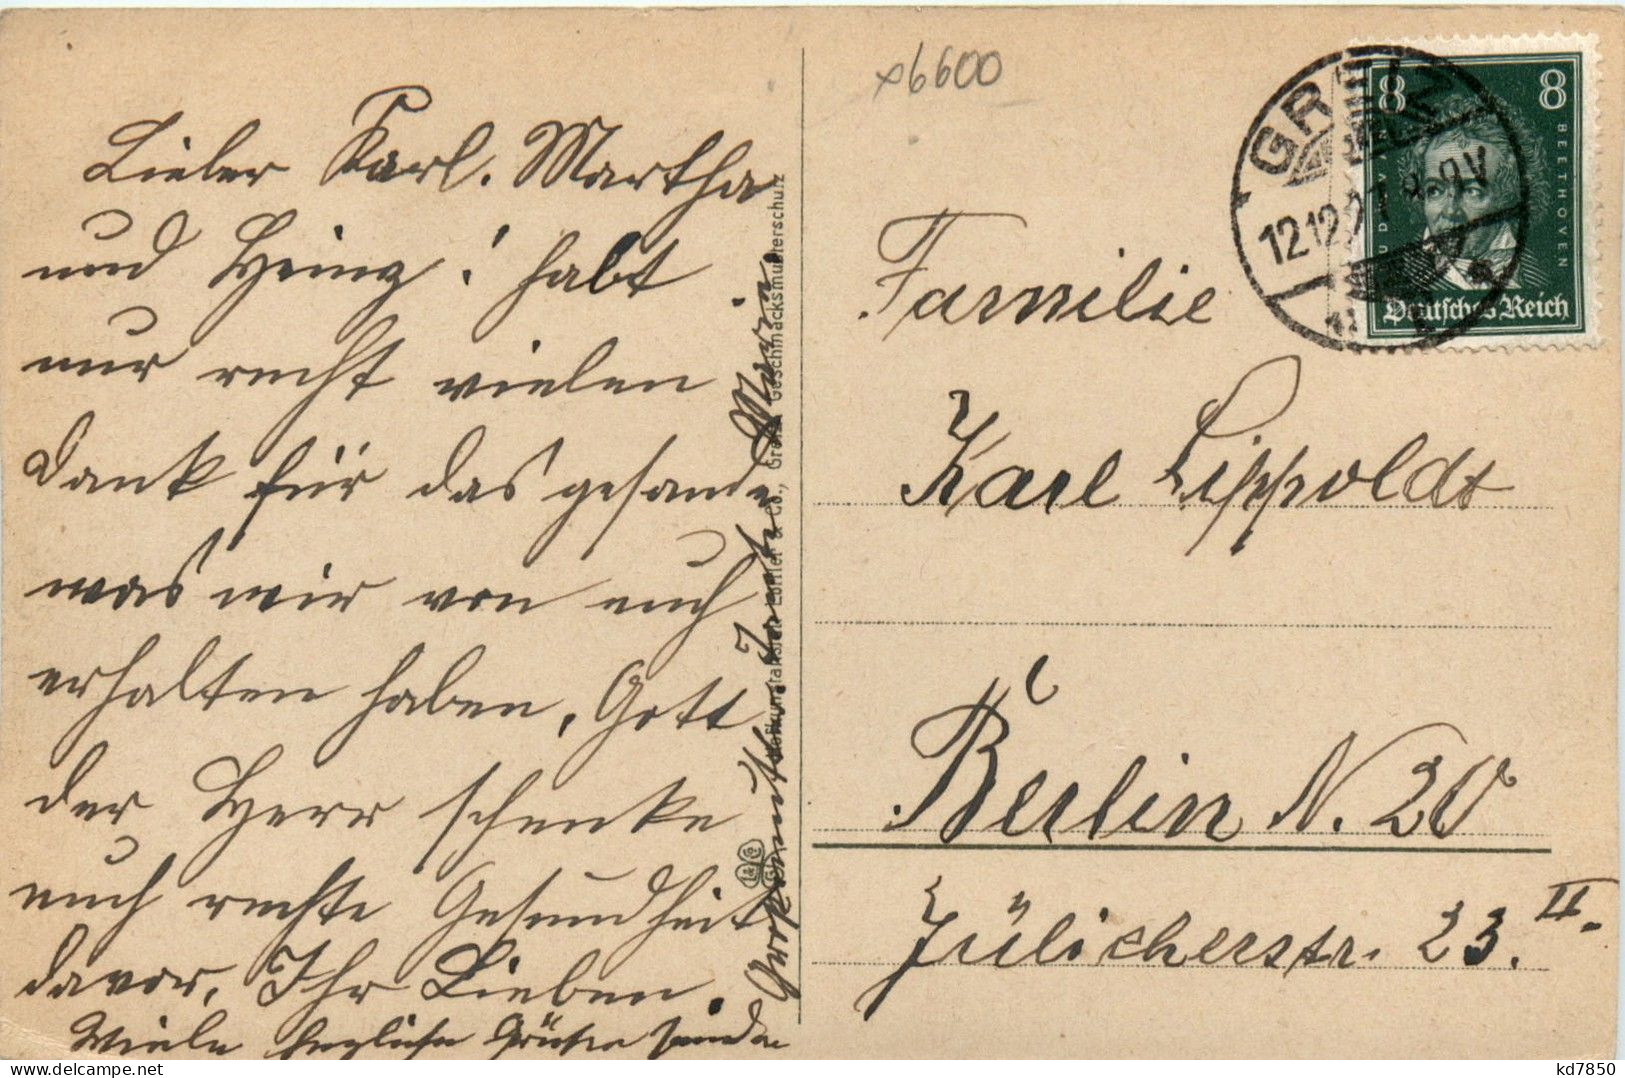 Lieber Karl. Martha
und Heinz! habt
nur recht vielen
Dank für das gesande
was wir von euch
erhalten haben, Gott
der Herr schenke
euch rechte Gesundheit
davor, Ihr Lieben.
Viele herzliche Grüße
Marie.
Geschmacksmusterschutz
L & Co
x6600
GREIZ
12.12.27
8 8
LUDW. VAN
BEETHOVEN
Deutsches Reich
Familie
Karl Lippoldt
Berlin N. 20
Jülicherstr. 23. II.
kd7850